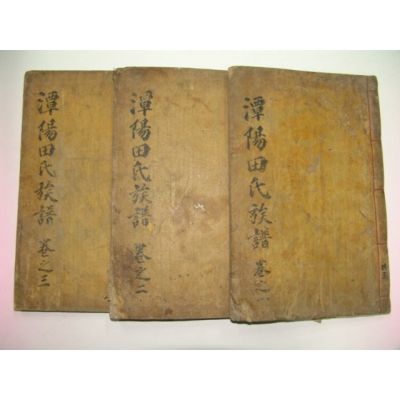 潭陽田氏族譜 卷之一
潭陽田氏族譜 卷之二
潭陽田氏族譜 卷之三